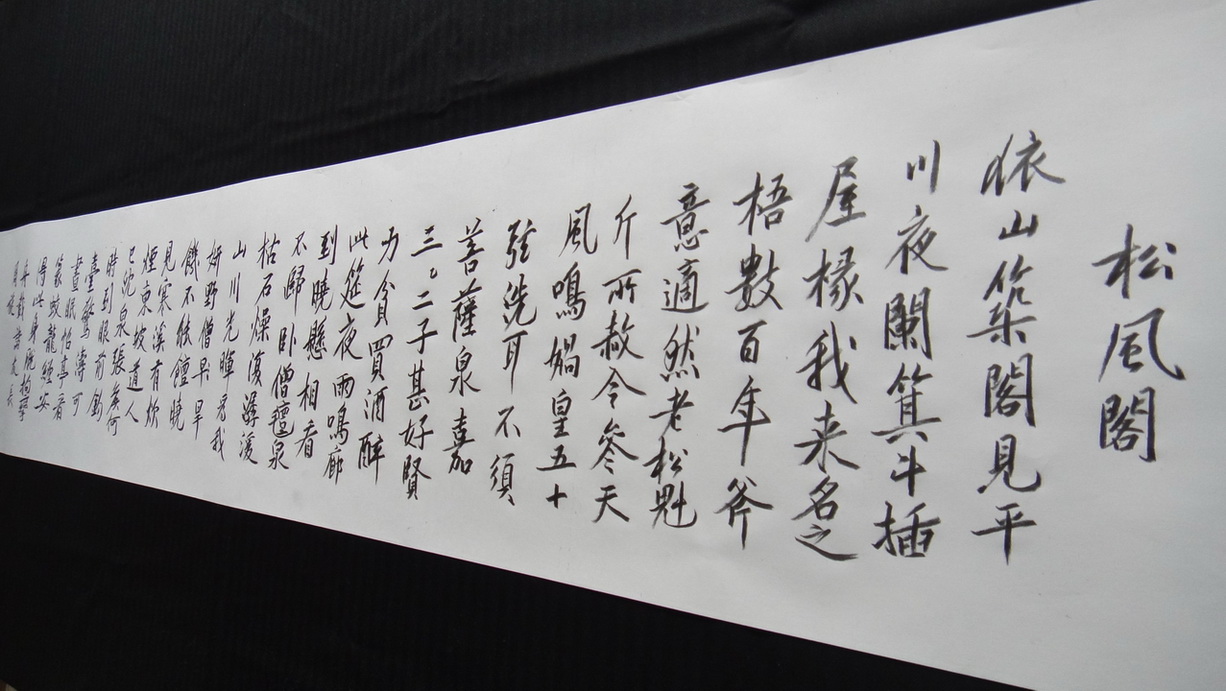 松風閣
依山築閣見平
川夜闌箕斗插
屋椽我来名之
意適然老松魁
梧數百年斧
斤所赦令參天
風鳴媧皇五十
弦洗耳不須
菩薩泉嘉
三二子甚好賢
力貧買酒醉
此筵夜雨鳴廊
到曉懸相看
不歸臥僧氊泉
枯石燥復潺湲
山川光暉為我
妍野僧早旱
饑不能饘曉
見寒溪有炊
煙東坡道人
已沈泉張侯何
時到眼前釣
臺驚濤可
晝眠怡亭看
篆蛟龍纏安
得此身脫拘攣
舟載諸友長